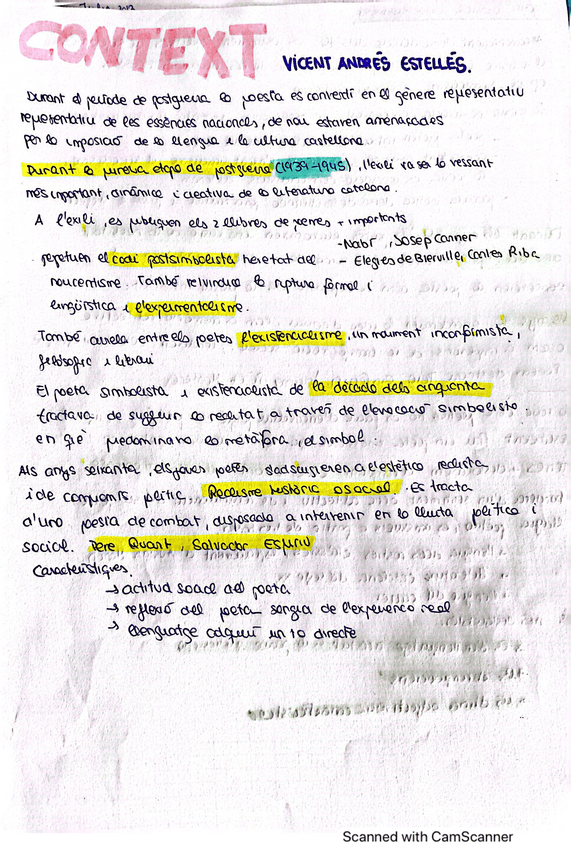 CONTEXT VICENT ANDRÉS ESTELLÉS.
Durant el període de postguerra la poesia es convertí en el gènere representatiu
representatiu de les essències nacionals, de nou estaven amenaçades
per la imposició de la llengua i la cultura castellana
Durant la primera etapa de postguerra (1939-1945), l'exili va ser la vessant
més important, dinàmica i creativa de la literatura catalana.
A l'exili, es publiquen els 2 llibres de poemes + importants
- Nabí, Josep Carner
perpetuen el codi postsimbolista heretat del - Elegies de Bierville, Carles Riba
noucentisme. També reivindica la ruptura formal i
lingüística i l'experimentalisme.
També arrela entre els poetes l'existencialisme, un moviment inconformista,
filosòfic i literari
El poeta simbolista i existencialista de la dècada dels cinquanta
tractava de suggerir la realitat a través de l'evocació simbolista
en què predominava la metàfora, el símbol.
Als anys seixanta, els joves poetes s'adscrigueren a l'estètica realista
i de compromís polític, Realisme històric o social. Es tracta
d'una poesia de combat, disposada a intervenir en la lluita política i
social. Pere, Quart, Salvador Espriu
Característiques.
→ actitud social del poeta
→ reflexió del poeta sorgia de l'experiència real
→ llenguatge adquirí un to directe
Scanned with CamScanner